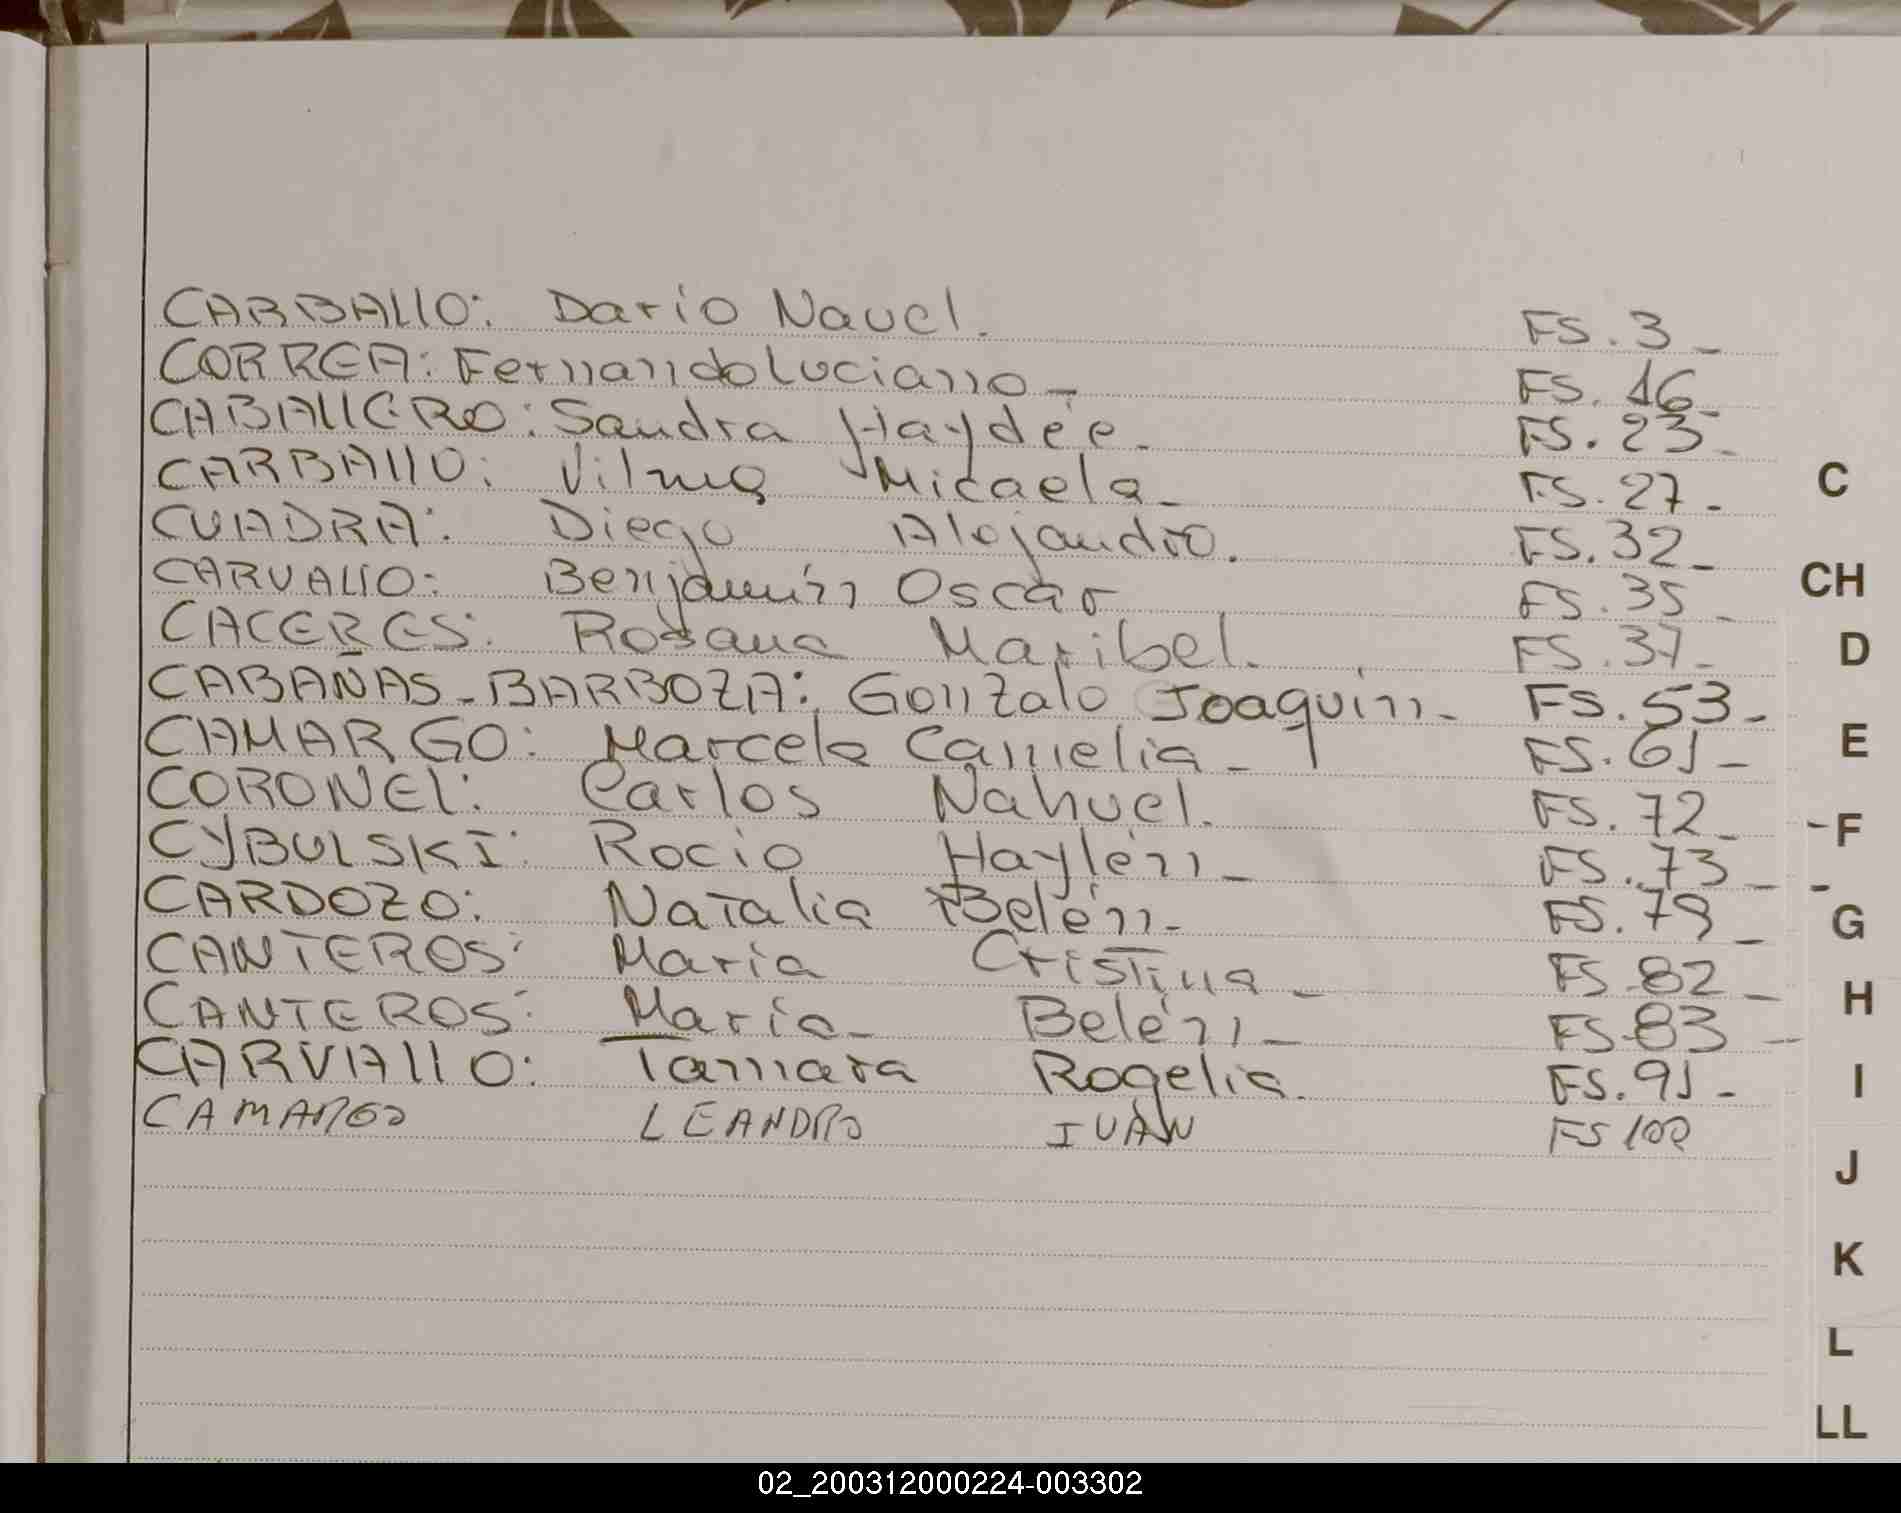 CARBALLO: Dario Nauel. FS. 3_
CORREA: Fernando Luciano_ FS. 16_
CABALLERO: Sandra Haydée. FS. 23_
CARBALLO: Vilma Micaela_ FS. 27_
CUADRA: Diego Alejandro. FS. 32_
CARVALLO: Benjamín Oscar FS. 35_
CACERES: Rosana Maribel. FS. 37_
CABAÑAS-BARBOZA: Gonzalo Joaquín_ FS. 53_
CAMARGO: Marcela Camelia_ FS. 61_
CORONEL: Carlos Nahuel. FS. 72_
CYBULSKI: Rocio Haylén_ FS. 73_
CARDOZO: Natalia Belén_ FS. 79_
CANTEROS: Maria Cristina_ FS. 82_
CANTEROS: Maria_ Belén_ FS. 83_
CARVALLO: Tamara Rogelia. FS. 91_
CAMARGO LEANDRO IVÁN FS 100
C
CH
D
E
F
G
H
I
J
K
L
LL
02_200312000224-003302